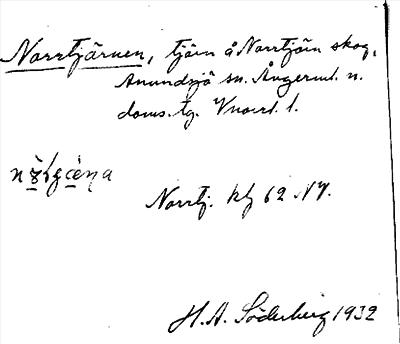 Norrtjärnen, tjärn å Norrtjärn skog,
Anundsjö sn. Ångerml. n.
doms. tg. Vnorrl. l.
Norrtj. kbl 62 NV.
H. A. Söderberg 1932